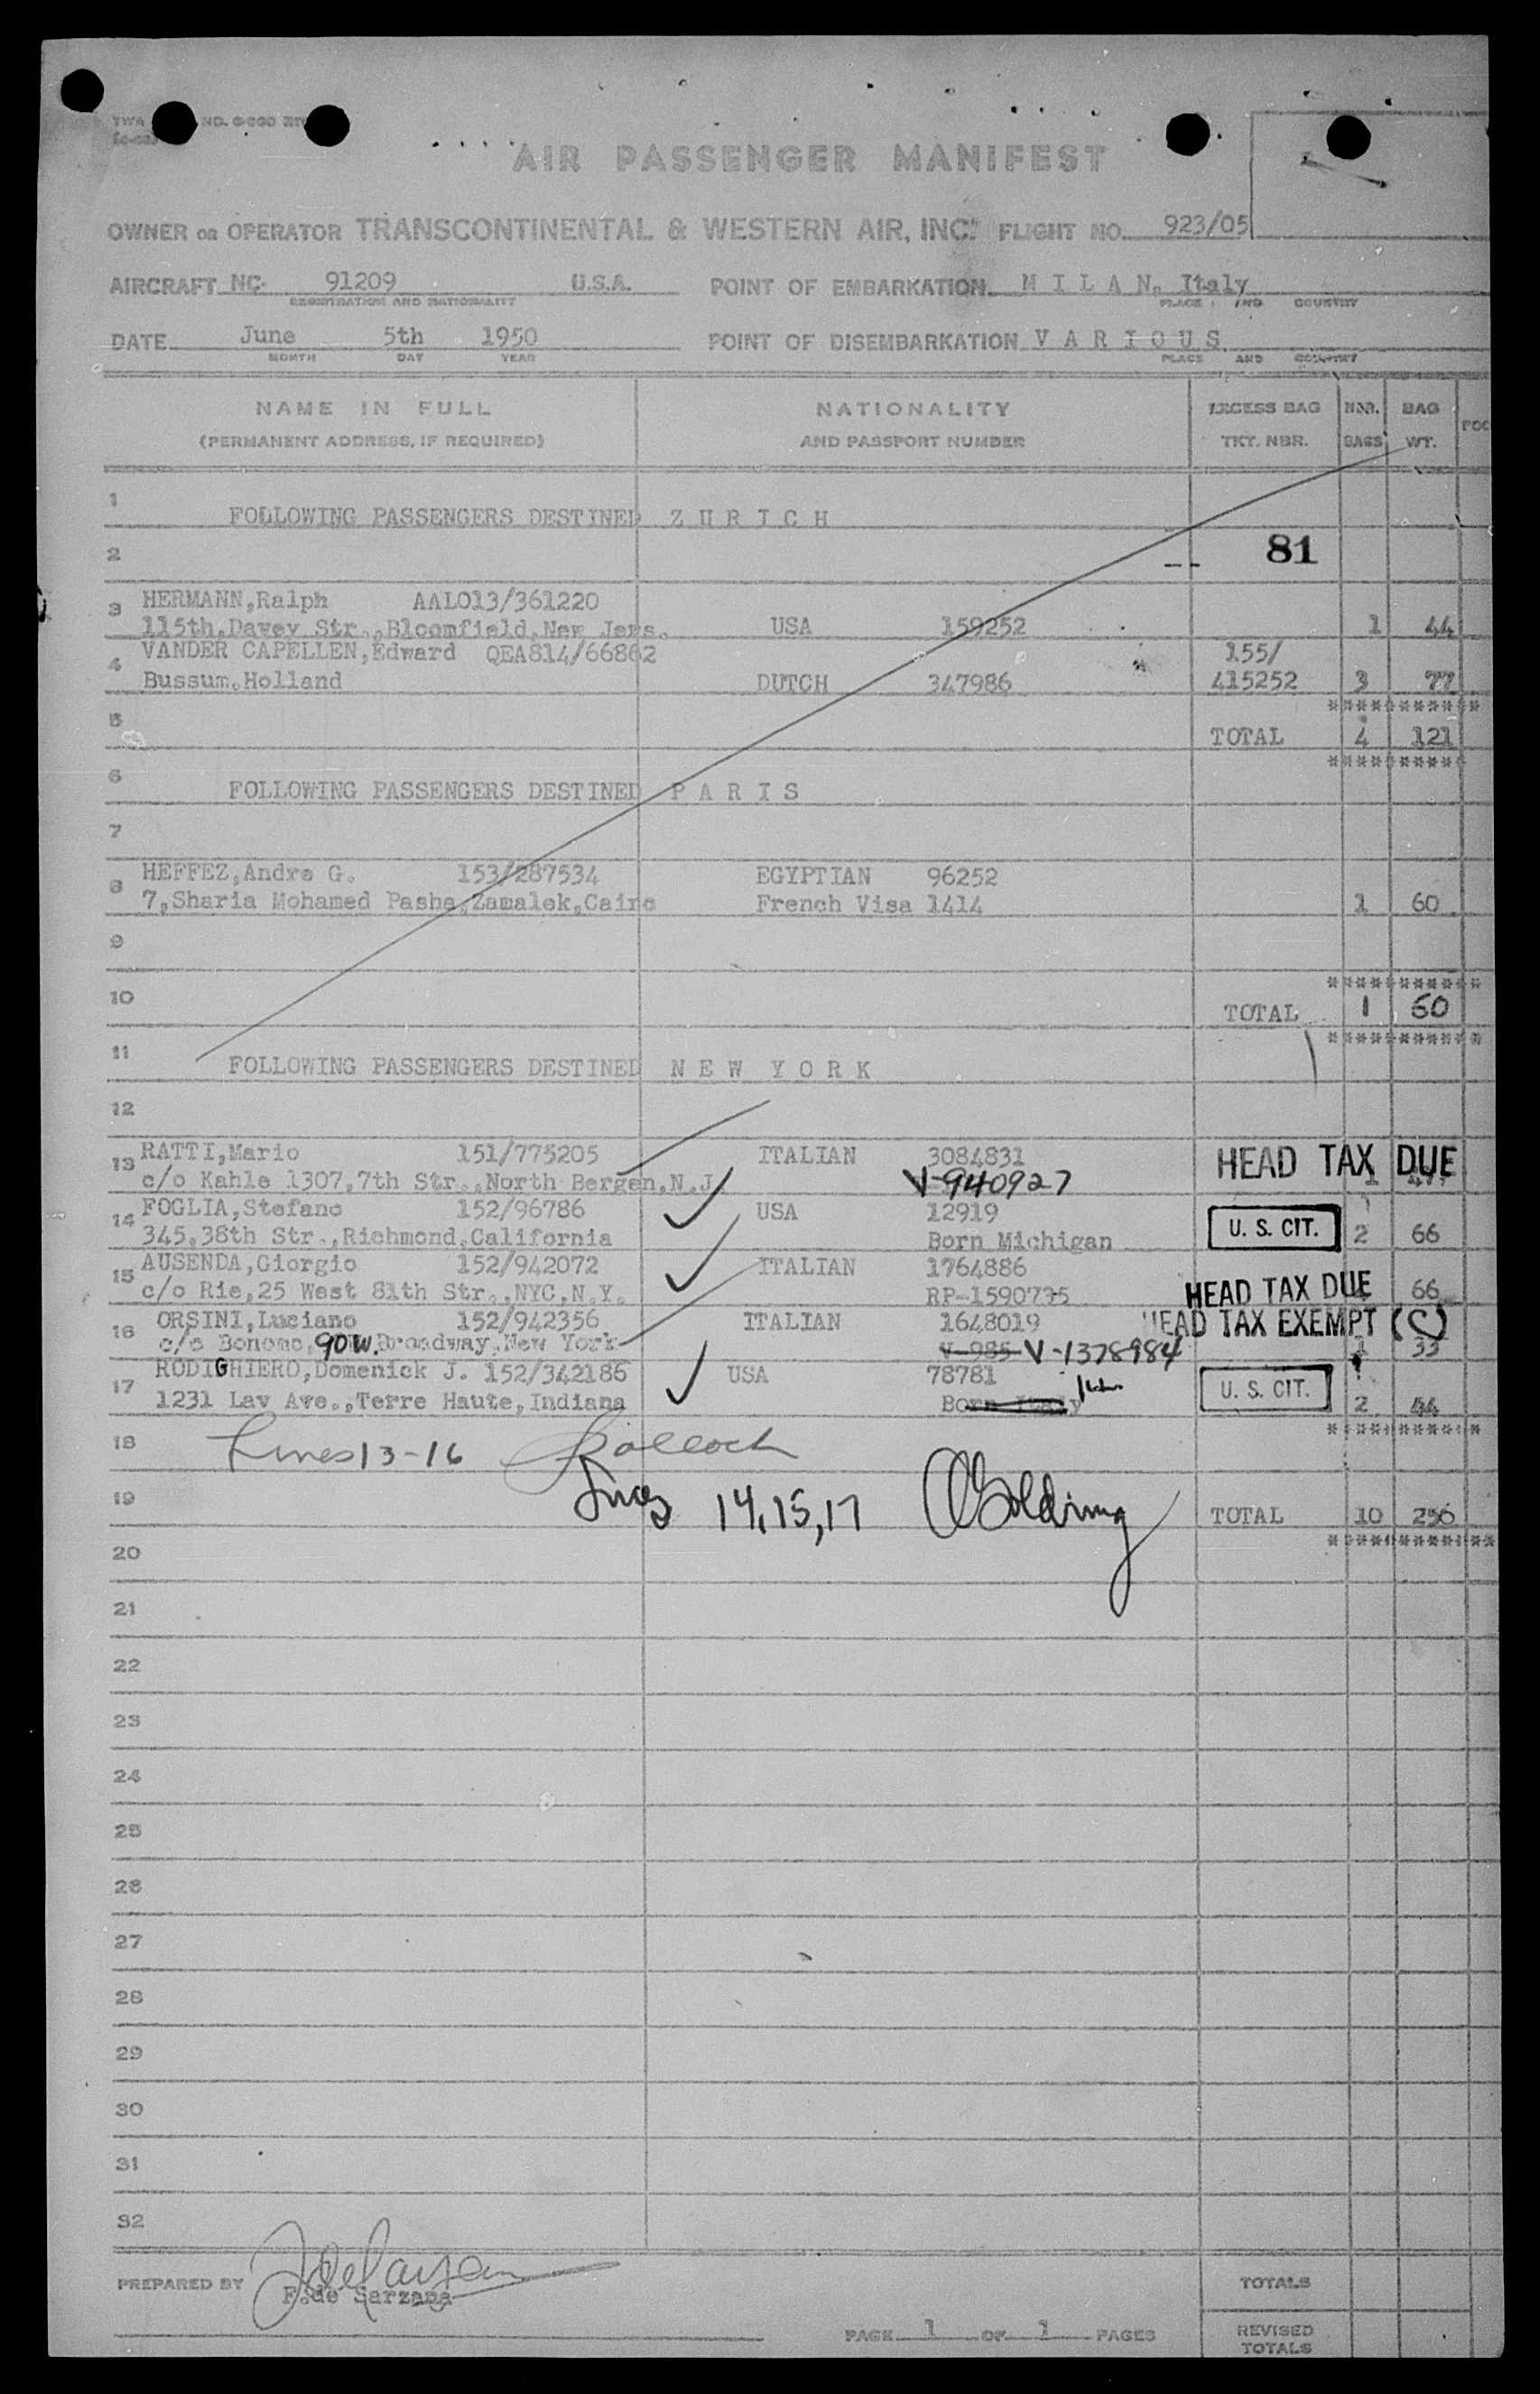 AIR PASSENGER MANIFEST
OWNER OR OPERATOR TRANSCONTINENTAL & WESTERN AIR, INC. FLIGHT NO. 923/05
AIRCRAFT NC- 91209 U.S.A. POINT OF EMBARKATION M I L A N. Italy
REGISTRATION AND NATIONALITY PLACE AND COUNTRY
DATE June 5th 1950 POINT OF DISEMBARKATION V A R I O U S
MONTH DAY YEAR PLACE AND COUNTRY
NAME IN FULL NATIONALITY EXCESS BAG NBR. BAG
(PERMANENT ADDRESS, IF REQUIRED) AND PASSPORT NUMBER TKT. NBR. BAGS WT.
1 FOLLOWING PASSENGERS DESTINED Z U R I C H
2 81
3 HERMANN,Ralph AALO13/361220
115th,Davey Str.,Bloomfield,New Jers. USA 159252 1 44
4 VANDER CAPELLEN,Edward QEA814/66862 155/
Bussum.Holland DUTCH 347986 415252 3 77
***********
5 TOTAL 4 121
**********
6 FOLLOWING PASSENGERS DESTINED P A R I S
7
8 HEFFEZ,Andre G. 153/287534 EGYPTIAN 96252
7,Sharia Mohamed Pasha,Zamalek,Cairo French Visa 1414 1 60
9
***********
10 TOTAL 1 60
***********
11 FOLLOWING PASSENGERS DESTINED N E W Y O R K
12
13 RATTI,Mario 151/775205 ITALIAN 3084831 HEAD TAX DUE
c/o Kahle 1307,7th Str.,North Bergen,N.J. V-940927 1
14 FOGLIA,Stefano 152/96786 USA 12919 U. S. CIT.
345,38th Str.,Richmond,California Born Michigan 2 66
15 AUSENDA,Giorgio 152/942072 ITALIAN 1764886 HEAD TAX DUE
c/o Rie,25 West 81th Str.,NYC,N.Y. RP-1590735 66
16 ORSINI,Luciano 152/942356 ITALIAN 1648019 HEAD TAX EXEMPT (C)
c/o Bonomo, 90 W. Broadway,New York V-985 V-1378984 1 33
17 RODIGHIERO,Domenick J. 152/342186 USA 78781 U. S. CIT.
1231 Lav Ave.,Terre Haute,Indiana Born Italy 2 44
***********
18 Lines 13-16
19 Lines 14,15,17 Golding TOTAL 10 256
20
21
22
23
24
25
26
27
28
29
30
31
32
PREPARED BY F.de Sarzana TOTALS
PAGE 1 OF 1 PAGES REVISED
TOTALS